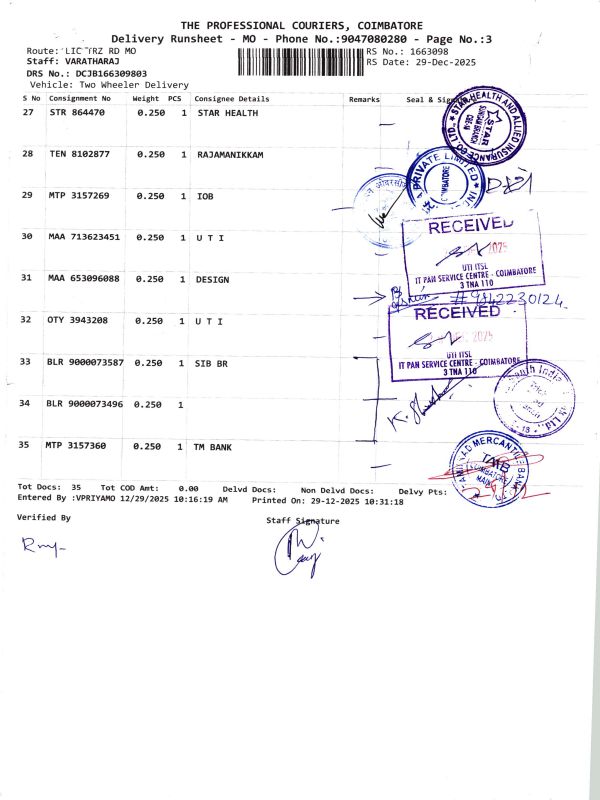 THE PROFESSIONAL COURIERS, COIMBATORE
Delivery Runsheet - MO - Phone No.:9047080280 - Page No.:3
Route: LIC TRZ RD MO RS No.: 1663098
Staff: VARATHARAJ RS Date: 29-Dec-2025
DRS No.: DCJB166309803
Vehicle: Two Wheeler Delivery
S No Consignment No Weight PCS Consignee Details Remarks Seal &
27 STR 864470 0.250 1 STAR HEALTH
STAR HEALTH AND ALLIED INSURANCE CO LTD.
STAR
28 TEN 8102877 0.250 1 RAJAMANIKKAM
PRIVATE LIMITED
COIMBATORE
29 MTP 3157269 0.250 1 IOB
30 MAA 713623451 0.250 1 U T I
RECEIVED
2025
UTI ITSL
IT PAN SERVICE CENTRE - COIMBATORE
3 TNA 110
31 MAA 653096088 0.250 1 DESIGN
#9842230124
32 OTY 3943208 0.250 1 U T I
RECEIVED
2025
UTI ITSL
IT PAN SERVICE CENTRE - COIMBATORE
3 TNA 110
33 BLR 9000073587 0.250 1 SIB BR
South Indian
34 BLR 9000073496 0.250 1
35 MTP 3157360 0.250 1 TM BANK
TAMILNAD MERCANTILE BANK
TMB
COIMBATORE
MAIN
Tot Docs: 35 Tot COD Amt: 0.00 Delvd Docs: Non Delvd Docs: Delvy Pts:
Entered By :VPRIYAMO 12/29/2025 10:16:19 AM Printed On: 29-12-2025 10:31:18
Verified By
Staff Signature